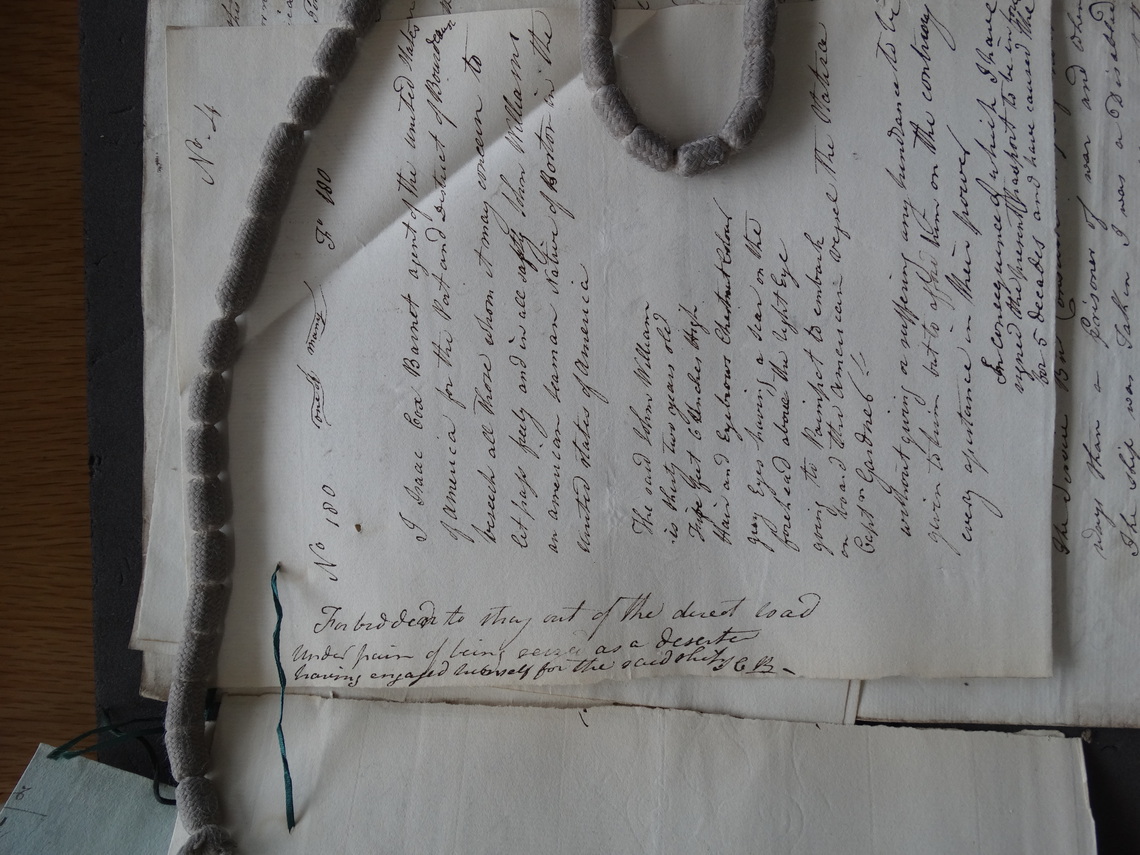 No. 4
No 180 Fo 180
I Isaac Cox Barnet agent of the united States
of america for the Port and District of Bourdeaux
beseech all Those whom it may concern to
let pass freely and in all safety John Williams
an american Seaman Native of Boston in the
United States of america
The said John William
is thirty two years old
Five feet 6 Inches high
Hair and Eyebrows Chestnut Colour
gray Eyes having a scar on the
forehead above the right Eye
going to Paimpol to embark
on board the american vessel the Patrice
Capt n Gardner
without giving or suffering any hindrance to be
given to him but to afford him on the contrary
every assistance in their power
In consequence of which I have
signed the present Passport to be in force
for 5 decades and have caused the
Forbidden to stray out of the direct road
Under pain of being seized as a deserter
having engaged himself for the said ship I C B
days than a Prisoner of war and when
The ship was Taken I was a Disabled